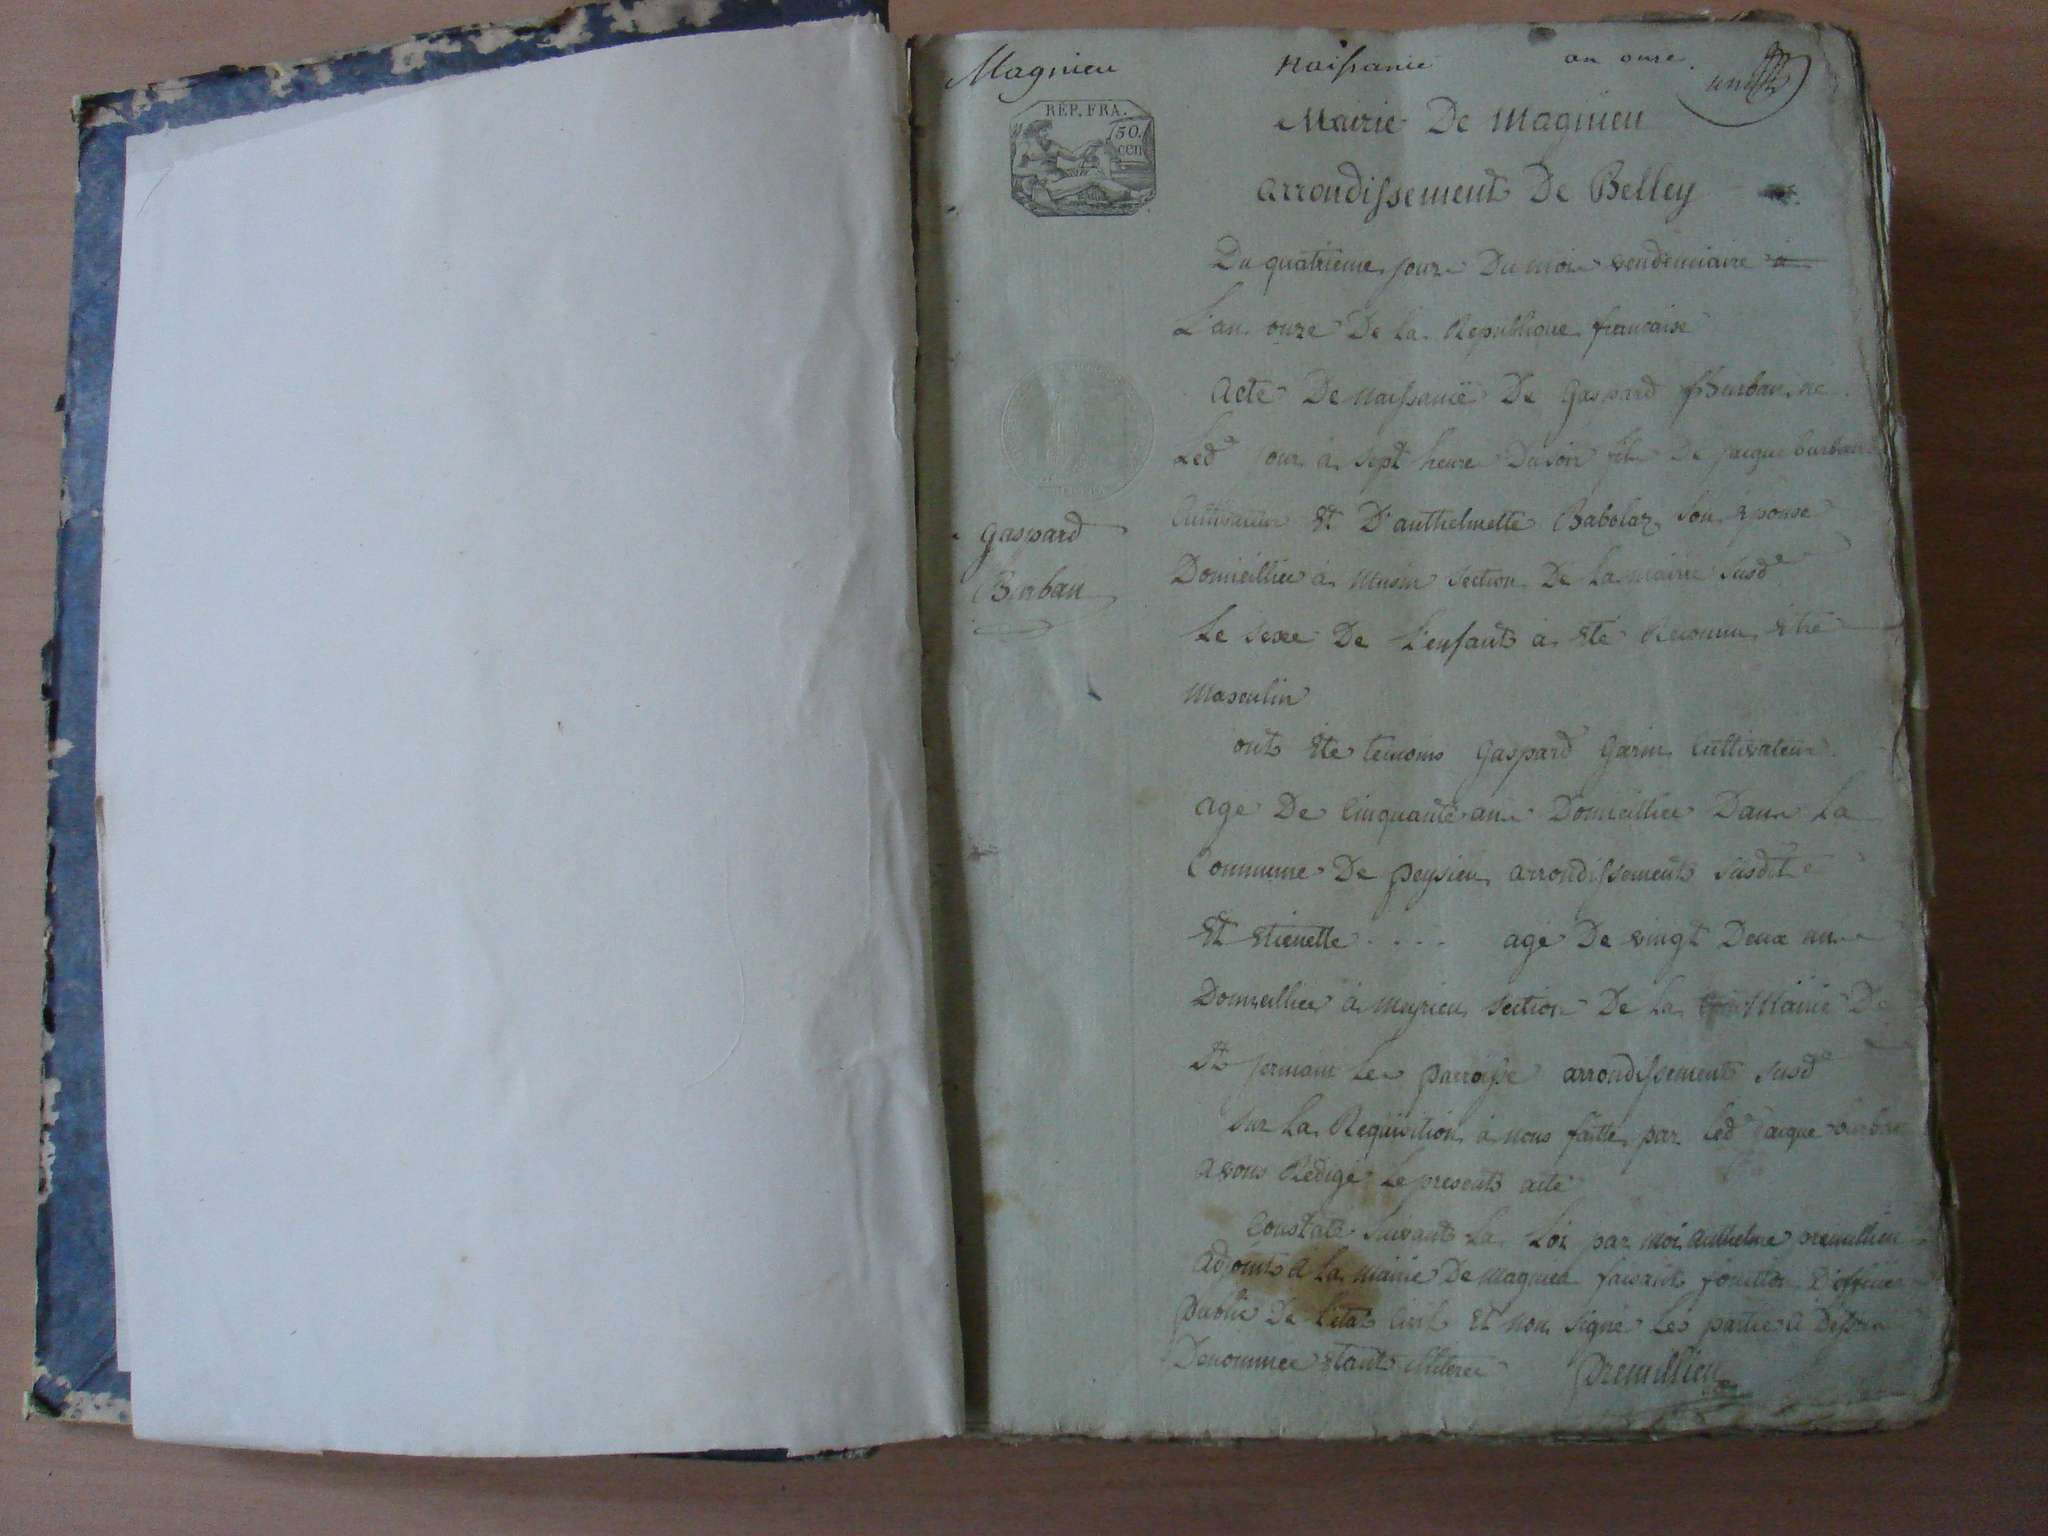 Magnieu naissance an onze.
RÉP. FRA.
50.
cen
Mairie De Magnieu
arrondissement De Belley
Du quatrieme jour Du mois vendemiaire
L'an onze De la Republique francaise
Acte De naissance De Gaspard Burban né
Led jour à sept heure Du soir fils De jacque burban
Cultivateur Et D'anthelmette Babolaz son Epouse
Domicillié à Musin section De la mairie susde
Le sexe De L'enfant à Eté Reconnu Etre
Masculin
Gaspard
Burban
ont Eté temoins Gaspard Garin Cultivateur
agé De Cinquante ans Domicillié Dans la
Commune De peysieu arrondissement susdit
Et Etienette . . . . agé De vingt Deux ans
Domicillié à meyrieu section De la Mairie De
St jermain les parroisse arrondissement susd
sur la Requisition à nous faitte par led jacque burban
avons Redigé le present acte
Constaté suivant La Loi par moi anthelme premillieu
adjoint à la mairie De magnieu faisant fonction D'officier
public De l'etat Civil Et non signé les partie
Denommée Etant illiteré Premillieu